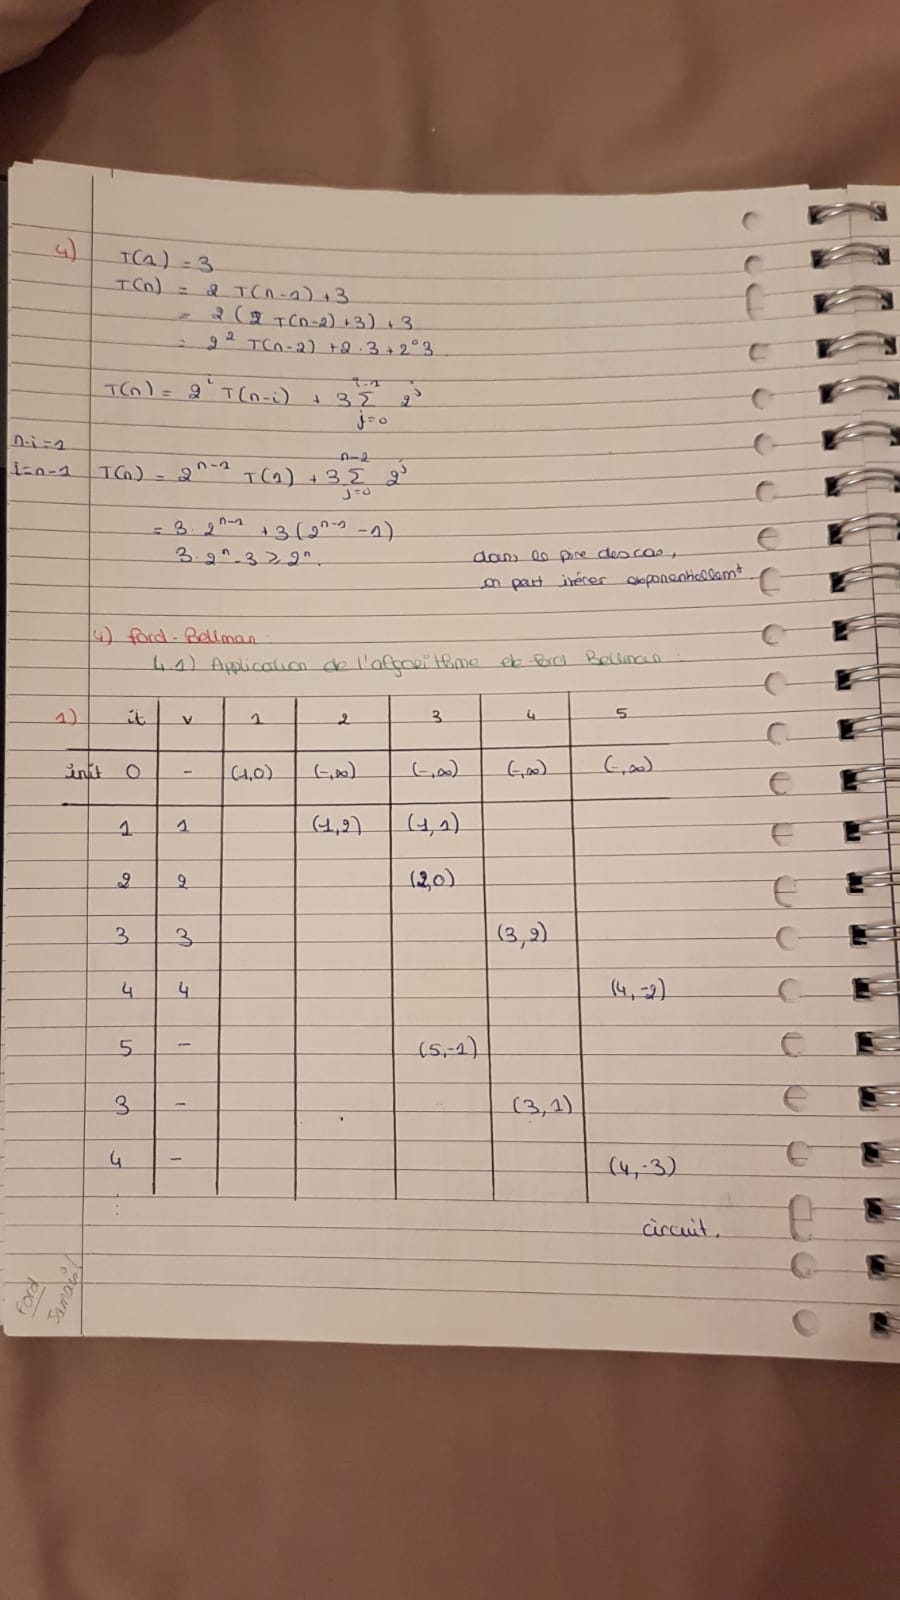 4) T(1) = 3
T(n) = 2 T(n-1) + 3
= 2 (2 T(n-2) + 3) + 3
= 2² T(n-2) + 2·3 + 2⁰3
T(n) = 2ⁱ T(n-i) + 3 Σ_{j=0}^{i-1} 2ʲ
n-i=1
i=n-1 T(n) = 2ⁿ⁻¹ T(1) + 3 Σ_{j=0}^{n-2} 2ʲ
= 3·2ⁿ⁻¹ + 3(2ⁿ⁻¹ - 1)
3·2ⁿ - 3 ≥ 2ⁿ. dans le pire des cas,
on peut itérer exponentiellemt
4) Ford-Bellman:
4.1) Application de l'algorithme de Ford Bellman:
1) it v 1 2 3 4 5
init 0 - (1,0) (-,∞) (-,∞) (-,∞) (-,∞)
1 1 (1,2) (1,1)
2 2 (2,0)
3 3 (3,2)
4 4 (4,-2)
5 - (5,-1)
3 - (3,1)
4 - (4,-3)
⋮
circuit.
Ford
Jamais!